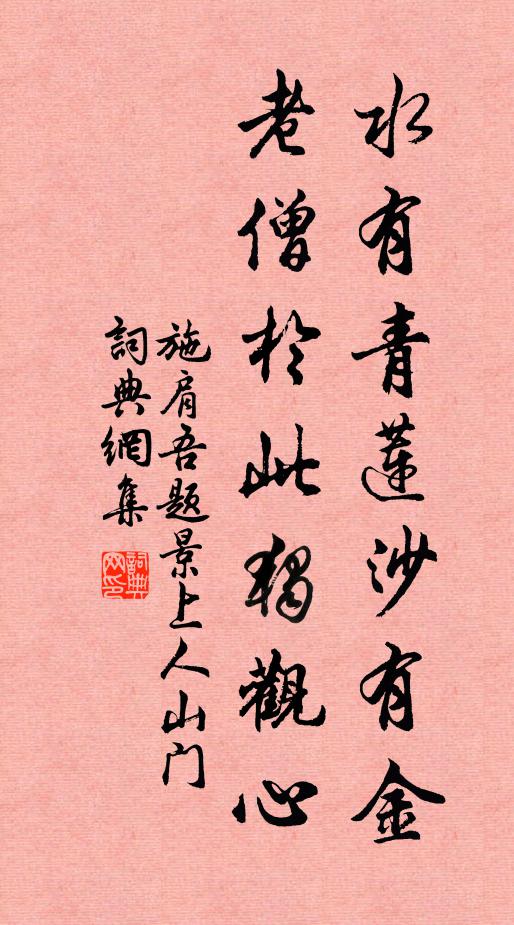 水有青蓮沙有金
老僧於此獨觀心
施肩吾题景上人山门
詞典網集
詞典網印